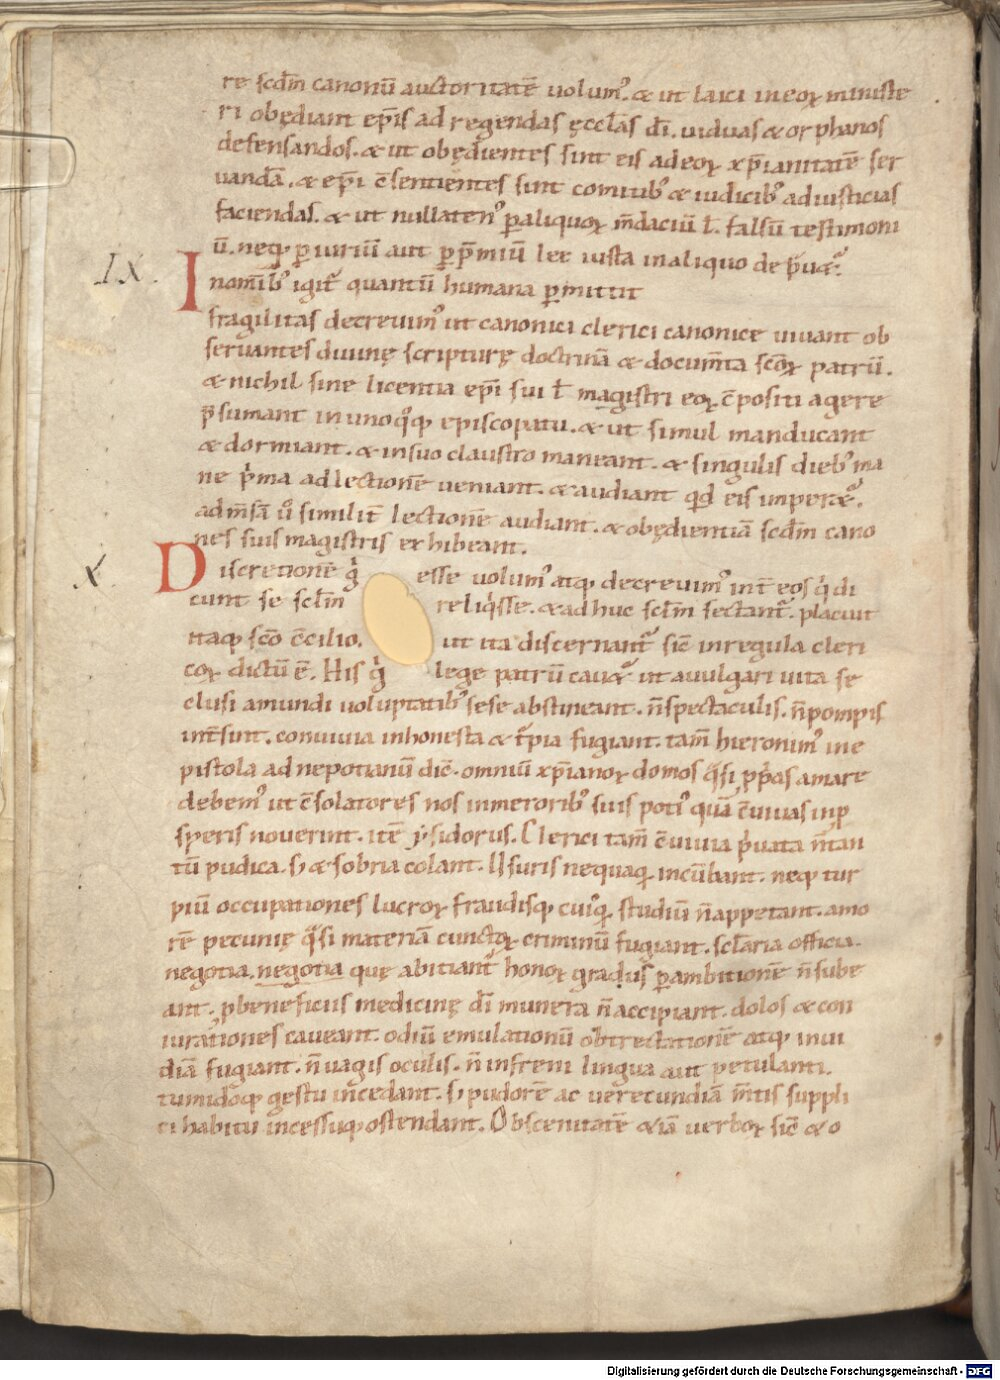 re scdm̄ canonū auctoritatē uolum'. & ut laici in eoꝝ ministe
ri obędiant ep̄is ad regendas ęcclas dī. uiduas & orphanos
defensandos. & ut obędientes sint eis ad eoꝝ xp̄ianitatē ser
uandā. & ep̄i c̄sentientes sint comitib' & iudicib' ad iusticias
faciendas. & ut nullaten' ꝑ aliquoꝝ m̄daciū ł falsū testimoni
ū. neqꝫ ꝑiuriū aut ꝑ p̄miū lex iusta in aliquo depuetꝰ.
IX.
In omīb' igit̄ quantū humana ꝑmittit
fragilitas decreuim' ut canonici clerici canonice uiuant ob
seruantes diuinę scripturę doctrinā & docum̄ta sc̄oꝝ patrū.
& nichil sine licentia ep̄i sui ł magistri eoꝝ c̄positi agere
p̄sumant in unoqͦqꝫ episcopatu. & ut simul manducant
& dormiant. & in suo claustro maneant. & singulis dieb' ma
ne pͥma ad lectionē ueniant. & audiant qd̄ eis imperetꝰ.
ad m̄sā uͦ similit̄ lectionē audiant. & obędientiā scdm̄ cano
nes suis magistris exhibeant.
X.
Discretionē gͥ esse uolum' atqꝫ decreuim' int̄ eos qͥ di
cunt se sclm̄ reliqͥsse. & adhuc sclm̄ sectant̄. placuit
itaqꝫ sc̄o c̄cilio. ut ita discernant̄ sic̄ in regula cleri
coꝝ dictū ē. His gͥ lege patrū cauetꝰ ut a uulgari uita se
clusi a mundi uoluptatib' sese abstineant. n̄ spectaculis. n̄ pompis
int̄sint. conuiuia inhonesta & t̄pia fugiant. tam̄ hieronim' in e
pistola ad nepotianū dic̄. omniū xp̄ianoꝝ domos qͣsi ꝓpͥas amare
debem' ut c̄solatores nos in meroribꝰ suis poti' quā c̄uiuas in ꝓ
speris nouerint. itē ẏsidorus. Clerici tam̄ c̄uiuia pͥuata n̄ tan
tū pudica. s; & sobria colant. Usuris nequaqꝫ incūbant. neqꝫ tur
piū occupationes lucroꝝ fraudisqꝫ cui'qꝫ studiū n̄ appetant. amo
rē pecunię qͣsi materiā cunctoꝝ criminū fugiant. sclaria officia.
negotia. negotia quę abitiant̄ honoꝝ gradus ꝑ ambitionē n̄ sube
ant. ꝓ beneficiis medicinę dī munera n̄ accipiant. dolos & con
iurationes caueant. odiū emulationū obtrectationē atqꝫ inui
diā fugiant. n̄ uagis oculis. n̄ infreni lingua aut petulanti.
tumidoqꝫ gestu incedant. s; pudorē ac uerecundiā m̄tis suppli
ci habitu incessuqꝫ ostendant. Obscenitatē &iā uerboꝝ sic̄ & o
Digitalisierung gefördert durch die Deutsche Forschungsgemeinschaft - DFG